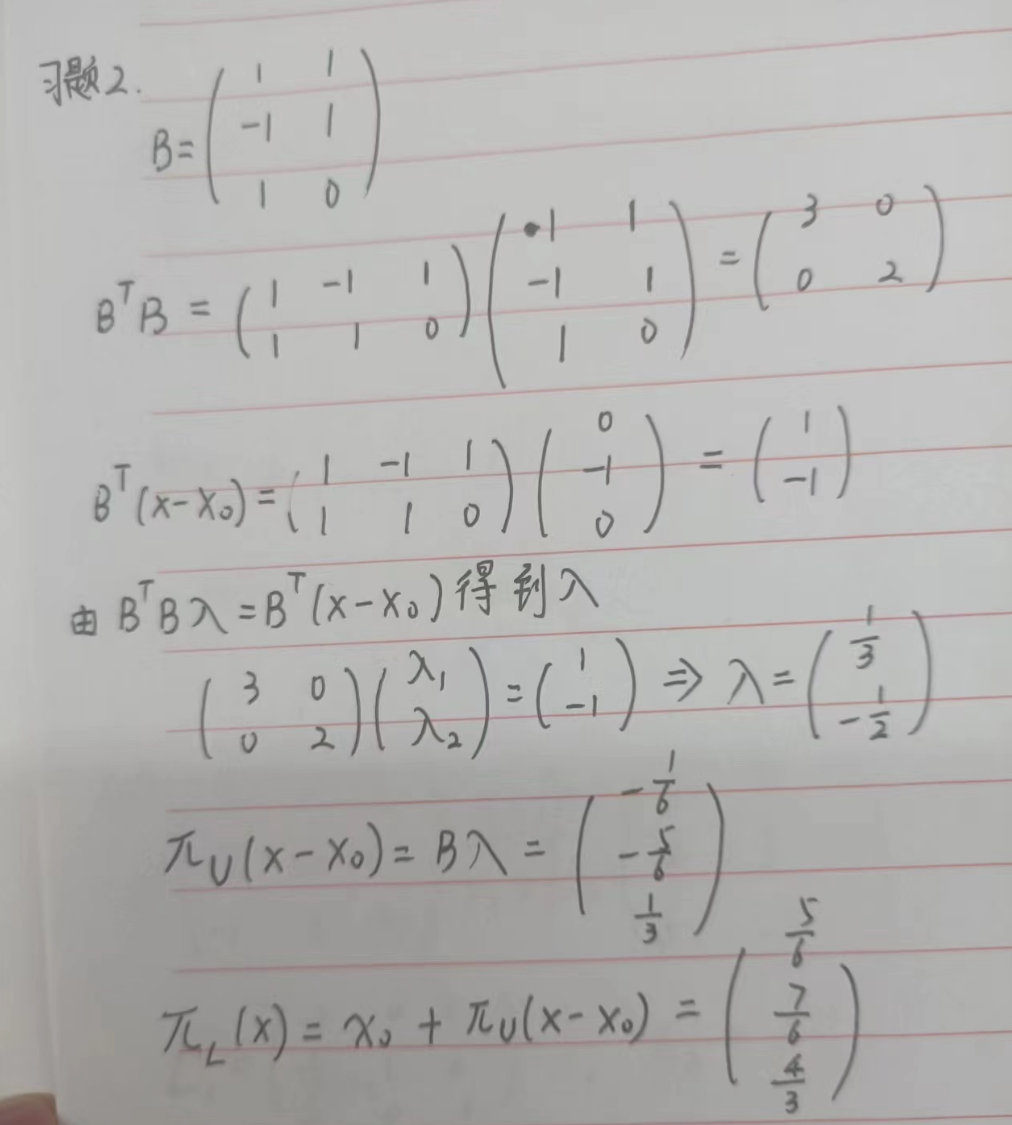 习题2.
B = ( 1 1 ; -1 1 ; 1 0 )
BᵀB = ( 1 -1 1 ; 1 1 0 ) ( 1 1 ; -1 1 ; 1 0 ) = ( 3 0 ; 0 2 )
Bᵀ(x-x₀) = ( 1 -1 1 ; 1 1 0 ) ( 0 ; -1 ; 0 ) = ( 1 ; -1 )
由 BᵀBλ = Bᵀ(x-x₀) 得到λ
( 3 0 ; 0 2 ) ( λ₁ ; λ₂ ) = ( 1 ; -1 ) ⇒ λ = ( 1/3 ; -1/2 )
π_U(x-x₀) = Bλ = ( -1/6 ; -5/6 ; 1/3 )
π_L(x) = x₀ + π_U(x-x₀) = ( 5/6 ; 7/6 ; 4/3 )